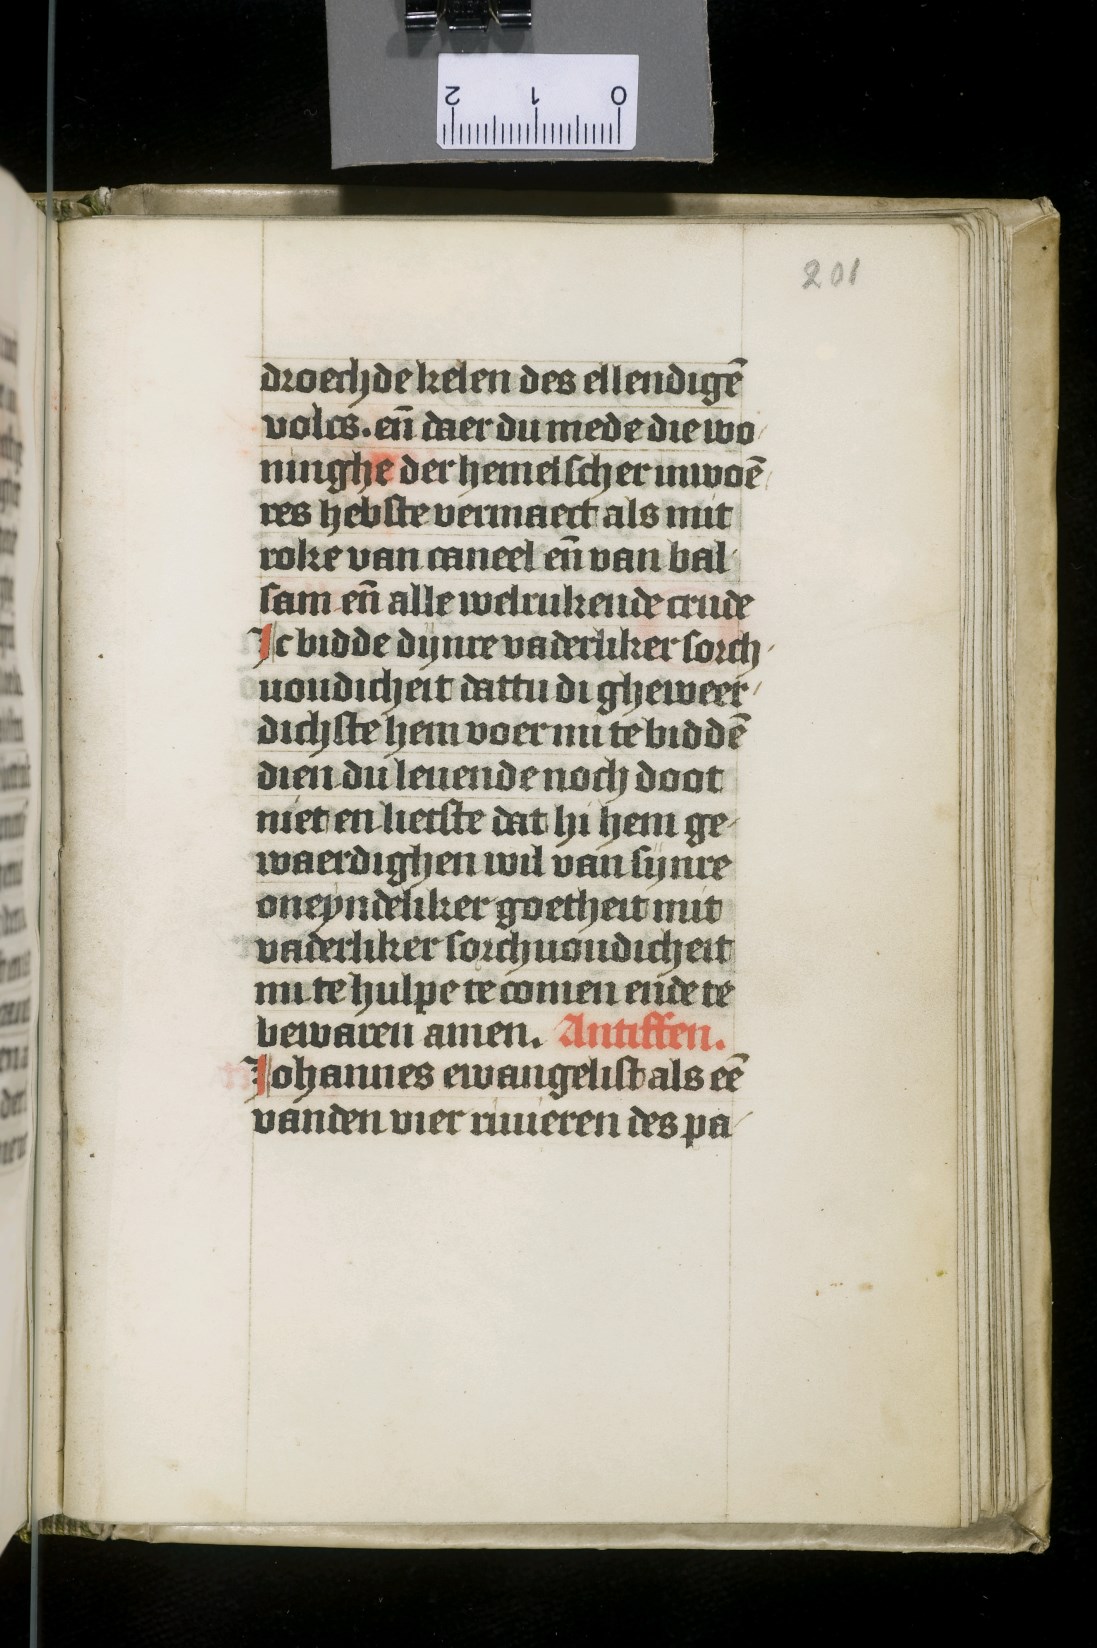 2 1 0
201
droechde kelen des ellendigē
volcs. en̄ daer du mede die wo
ninghe der hemelscher inwoē
res hebste vermaect als mit
roke van caneel en̄ van bal
sam en̄ alle welrukende crude
Ic bidde dijnre vaderliker sorch
uoudicheit dattu di gheweer
dichste hem voer mi te biddē
dien du leuende noch doot
niet en lietste dat hi hem ge
waerdighen wil van sijnre
oneyndeliker goetheit mit
vaderliker sorchuoudicheit
mi te hulpe te comen ende te
bewaren amen. Antiffen.
Johannes ewangelist als eē
vanden vier riuieren des pa